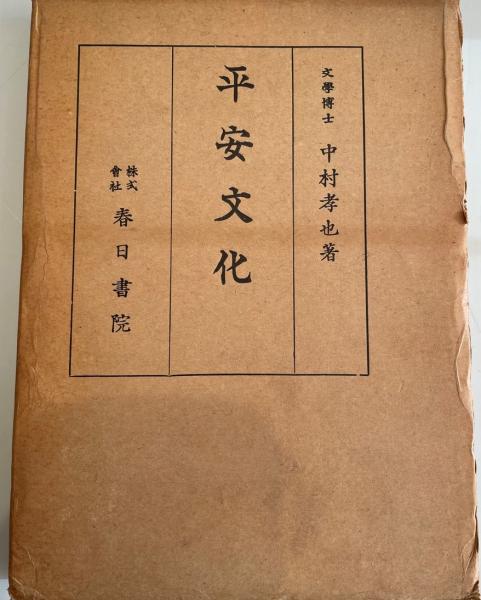 文學博士 中村孝也著
平安文化
株式會社 春日書院